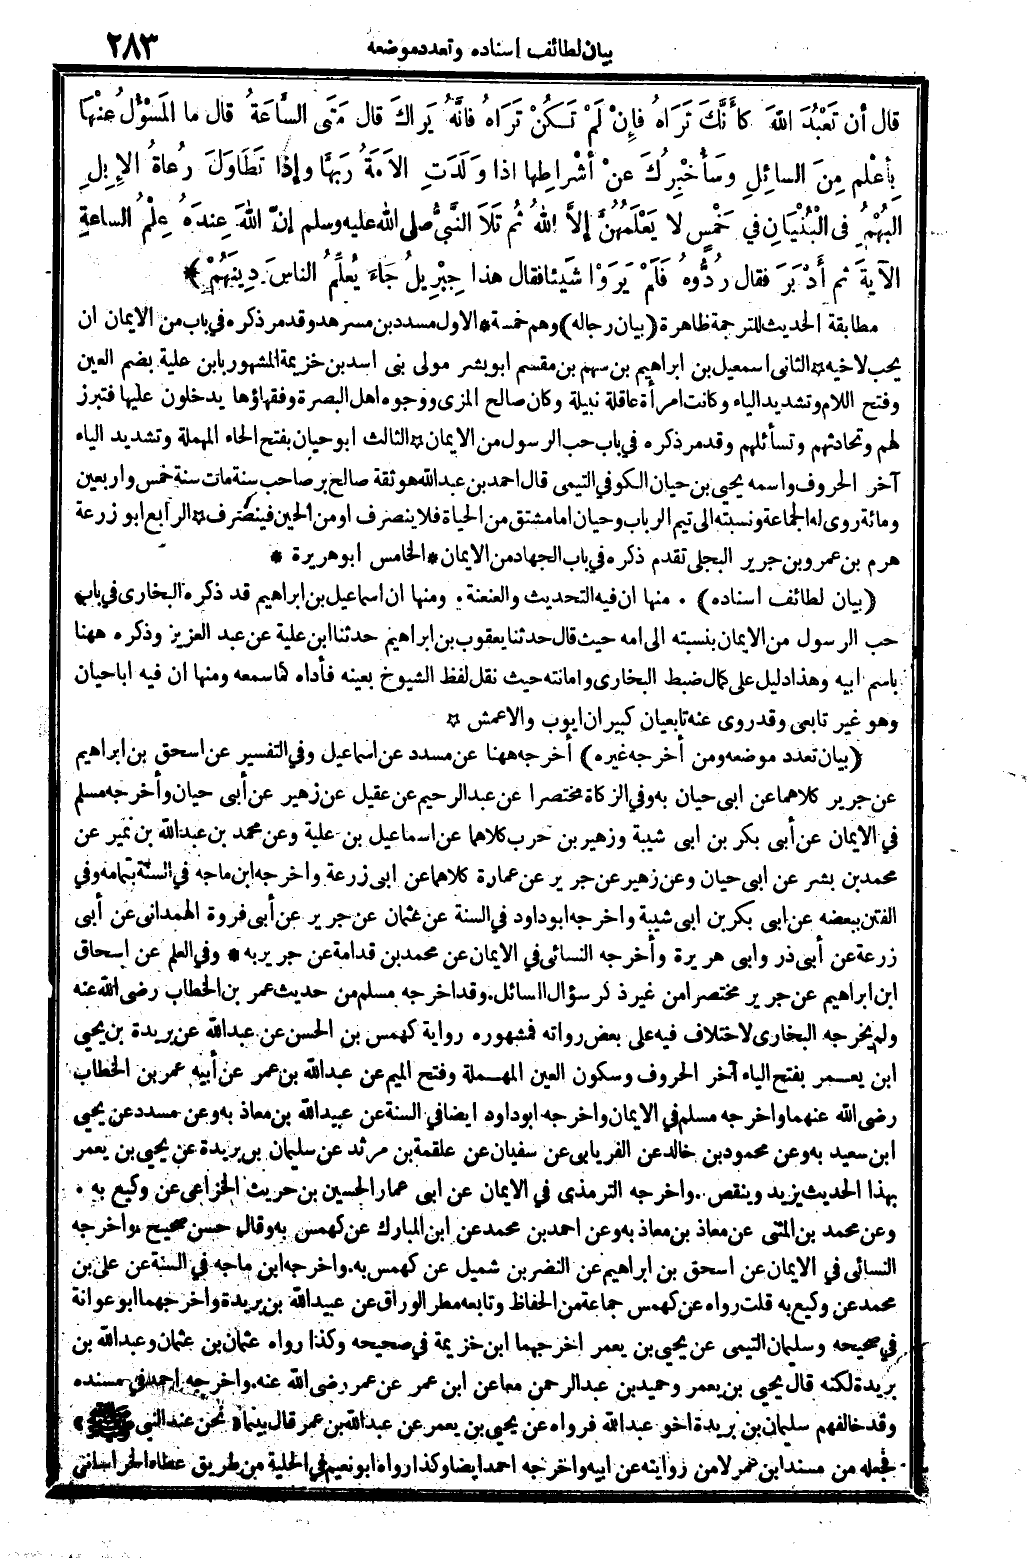 بيان لطائف اسناده وتعدد موضعه ٢٨٣
قال أن تَعْبُدَ اللهَ كأَنَّكَ تَرَاهُ فإنْ لَمْ تَكُنْ تَرَاهُ فانَّهُ يَرَاكَ قال مَتَى السَّاعَةُ قال ما المَسْؤُلُ عنْهَا
بأعْلم مِنَ السائِلِ وسَأُخْبِرُكَ عنْ أشْرَاطِها اذا وَلَدَتِ الاَمَةُ رَبَّها وإذا تَطَاوَلَ رُعاةُ الإبِلِ
البُهْمُ فى الْبُنْيَانِ في خَمْسٍ لا يَعْلَمُهُنَّ إلاَّ اللهُ ثُم تَلاَ النَّبيُّ صلى الله عليه وسلم إنّ اللهَ عِندَهُ عِلْمُ الساعةِ
الآيةَ ثم أَدْبَرَ فقال رُدُّوهُ فَلَمْ يَرَوْا شَيئا فقال هذا جِبْرِيلُ جَاءَ يُعلِّمُ الناسَ دِينَهُمْ * )
مطابقة الحديث للترجمة ظاهرة ( بيان رجاله ) وهم خمسة * الاول مسدد بن مسرهد وقد مر ذكره في باب من الايمان ان
يحب لاخيه ☆ الثانى اسمعيل بن ابراهيم بن سهم بن مقسم ابو بشر مولى بنى اسد بن خزيمة المشهور بابن علية بضم العين
وفتح اللام وتشديد الياء وكانت امرأة عاقلة نبيلة وكان صالح المزى ووجوه اهل البصرة وفقهاؤها يدخلون عليها فتبرز
لهم وتحادثهم وتسائلهم وقد مر ذكره في باب حب الرسول من الايمان ☆ الثالث ابو حيان بفتح الحاء المهملة وتشديد الياء
آخر الحروف واسمه يحيى بن حيان الكوفي التيمى قال احمد بن عبدالله هو ثقة صالح بر صاحب سنة مات سنة خمس واربعين
ومائة روى له الجماعة ونسبته الى تيم الرباب وحيان اما مشتق من الحياة فلا ينصرف او من الحين فينصرف ☆ الرابع ابو زرعة
هرم بن عمرو بن جرير البجلى تقدم ذكره في باب الجهاد من الايمان * الخامس ابو هريرة *
( بيان لطائف اسناده ) . منها ان فيه التحديث والعنعنة . ومنها ان اسماعيل بن ابراهيم قد ذكره البخارى في باب
حب الرسول من الايمان بنسبته الى امه حيث قال حدثنا يعقوب بن ابراهيم حدثنا ابن علية عن عبد العزيز وذكره ههنا
باسم ابيه وهذا دليل على كمال ضبط البخارى وامانته حيث نقل لفظ الشيوخ بعينه فأداه كما سمعه ومنها ان فيه ابا حيان
وهو غير تابعى وقد روى عنه تابعيان كبيران ايوب والاعمش ☆
( بيان تعدد موضعه ومن أخرجه غيره ) أخرجه ههنا عن مسدد عن اسماعيل وفي التفسير عن اسحق بن ابراهيم
عن جرير كلاهما عن ابى حيان به وفي الزكاة مختصرا عن عبد الرحيم عن عقيل عن زهير عن أبى حيان وأخرجه مسلم
في الايمان عن أبى بكر بن ابى شيبة وزهير بن حرب كلاهما عن اسماعيل بن علية وعن محمد بن عبدالله بن نمير عن
محمد بن بشر عن ابى حيان وعن زهير عن جرير عن عمارة كلاهما عن ابى زرعة واخرجه ابن ماجه في السنة بتمامه وفي
الفتن ببعضه عن ابى بكر بن ابى شيبة واخرجه ابو داود في السنة عن عثمان عن جرير عن أبى فروة الهمدانى عن أبى
زرعة عن أبى ذر وابى هريرة وأخرجه النسائى في الايمان عن محمد بن قدامة عن جرير به * وفي العلم عن اسحاق
ابن ابراهيم عن جرير مختصرا من غير ذكر سؤال السائل . وقد اخرجه مسلم من حديث عمر بن الخطاب رضى الله عنه
ولم يخرجه البخارى لاختلاف فيه على بعض رواته فمشهوره رواية كهمس بن الحسن عن عبدالله عن بريدة بن يحيى
ابن يعمر بفتح الياء آخر الحروف وسكون العين المهملة وفتح الميم عن عبدالله بن عمر عن أبيه عمر بن الخطاب
رضى الله عنهما واخرجه مسلم في الايمان واخرجه ابو داود ايضا في السنة عن عبيدالله بن معاذ به وعن مسدد عن يحيى
ابن سعيد به وعن محمود بن خالد عن الفريابى عن سفيان عن علقمة بن مرثد عن سليمان بن بريدة عن يحيى بن يعمر
بهذا الحديث يزيد وينقص . واخرجه الترمذى في الايمان عن ابى عمار الحسين بن حريث الخزاعى عن وكيع به .
وعن محمد بن المثنى عن معاذ بن معاذ به وعن احمد بن محمد عن ابن المبارك عن كهمس به وقال حسن صحيح واخرجه
النسائى في الايمان عن اسحق بن ابراهيم عن النضر بن شميل عن كهمس به . واخرجه ابن ماجه في السنة عن على بن
محمد عن وكيع به قلت رواه عن كهمس جماعة من الحفاظ وتابعه مطر الوراق عن عبدالله بن بريدة واخرجهما ابو عوانة
في صحيحه وسليمان التيمى عن يحيى بن يعمر اخرجهما ابن خزيمة في صحيحه وكذا رواه عثمان بن عثمان وعبدالله بن
بريدة لكنه قال يحيى بن يعمر وحميد بن عبد الرحمن معا عن ابن عمر عن عمر رضى الله عنه . واخرجه احمد في مسنده
وقد خالفهم سليمان بن بريدة اخو عبدالله فرواه عن يحيى بن يعمر عن عبدالله بن عمر قال بينما « نحن عند النبى ﷺ »
فجعله من مسند ابن عمر لا من روايته عن ابيه واخرجه احمد ايضا وكذا رواه ابو نعيم في الحلية من طريق عطاء الخراسانى